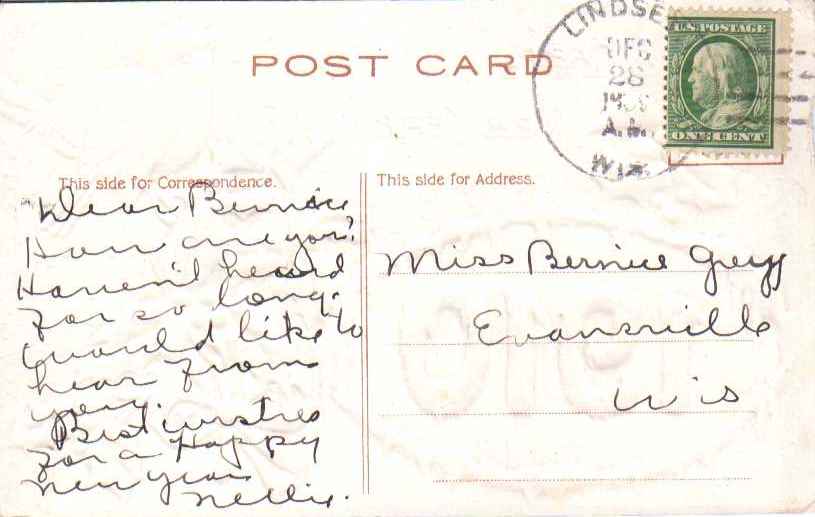 POST CARD
LINDSE
DEC
28
A.M.
WIS.
U.S. POSTAGE
ONE CENT
This side for Correspondence.
This side for Address.
Dear Bernice
How are you?
Haven't heard
for so long.
Would like to
hear from
you.
Best wishes
for a Happy
New Year
Nellie.
Miss Bernice
Evansville
Wis